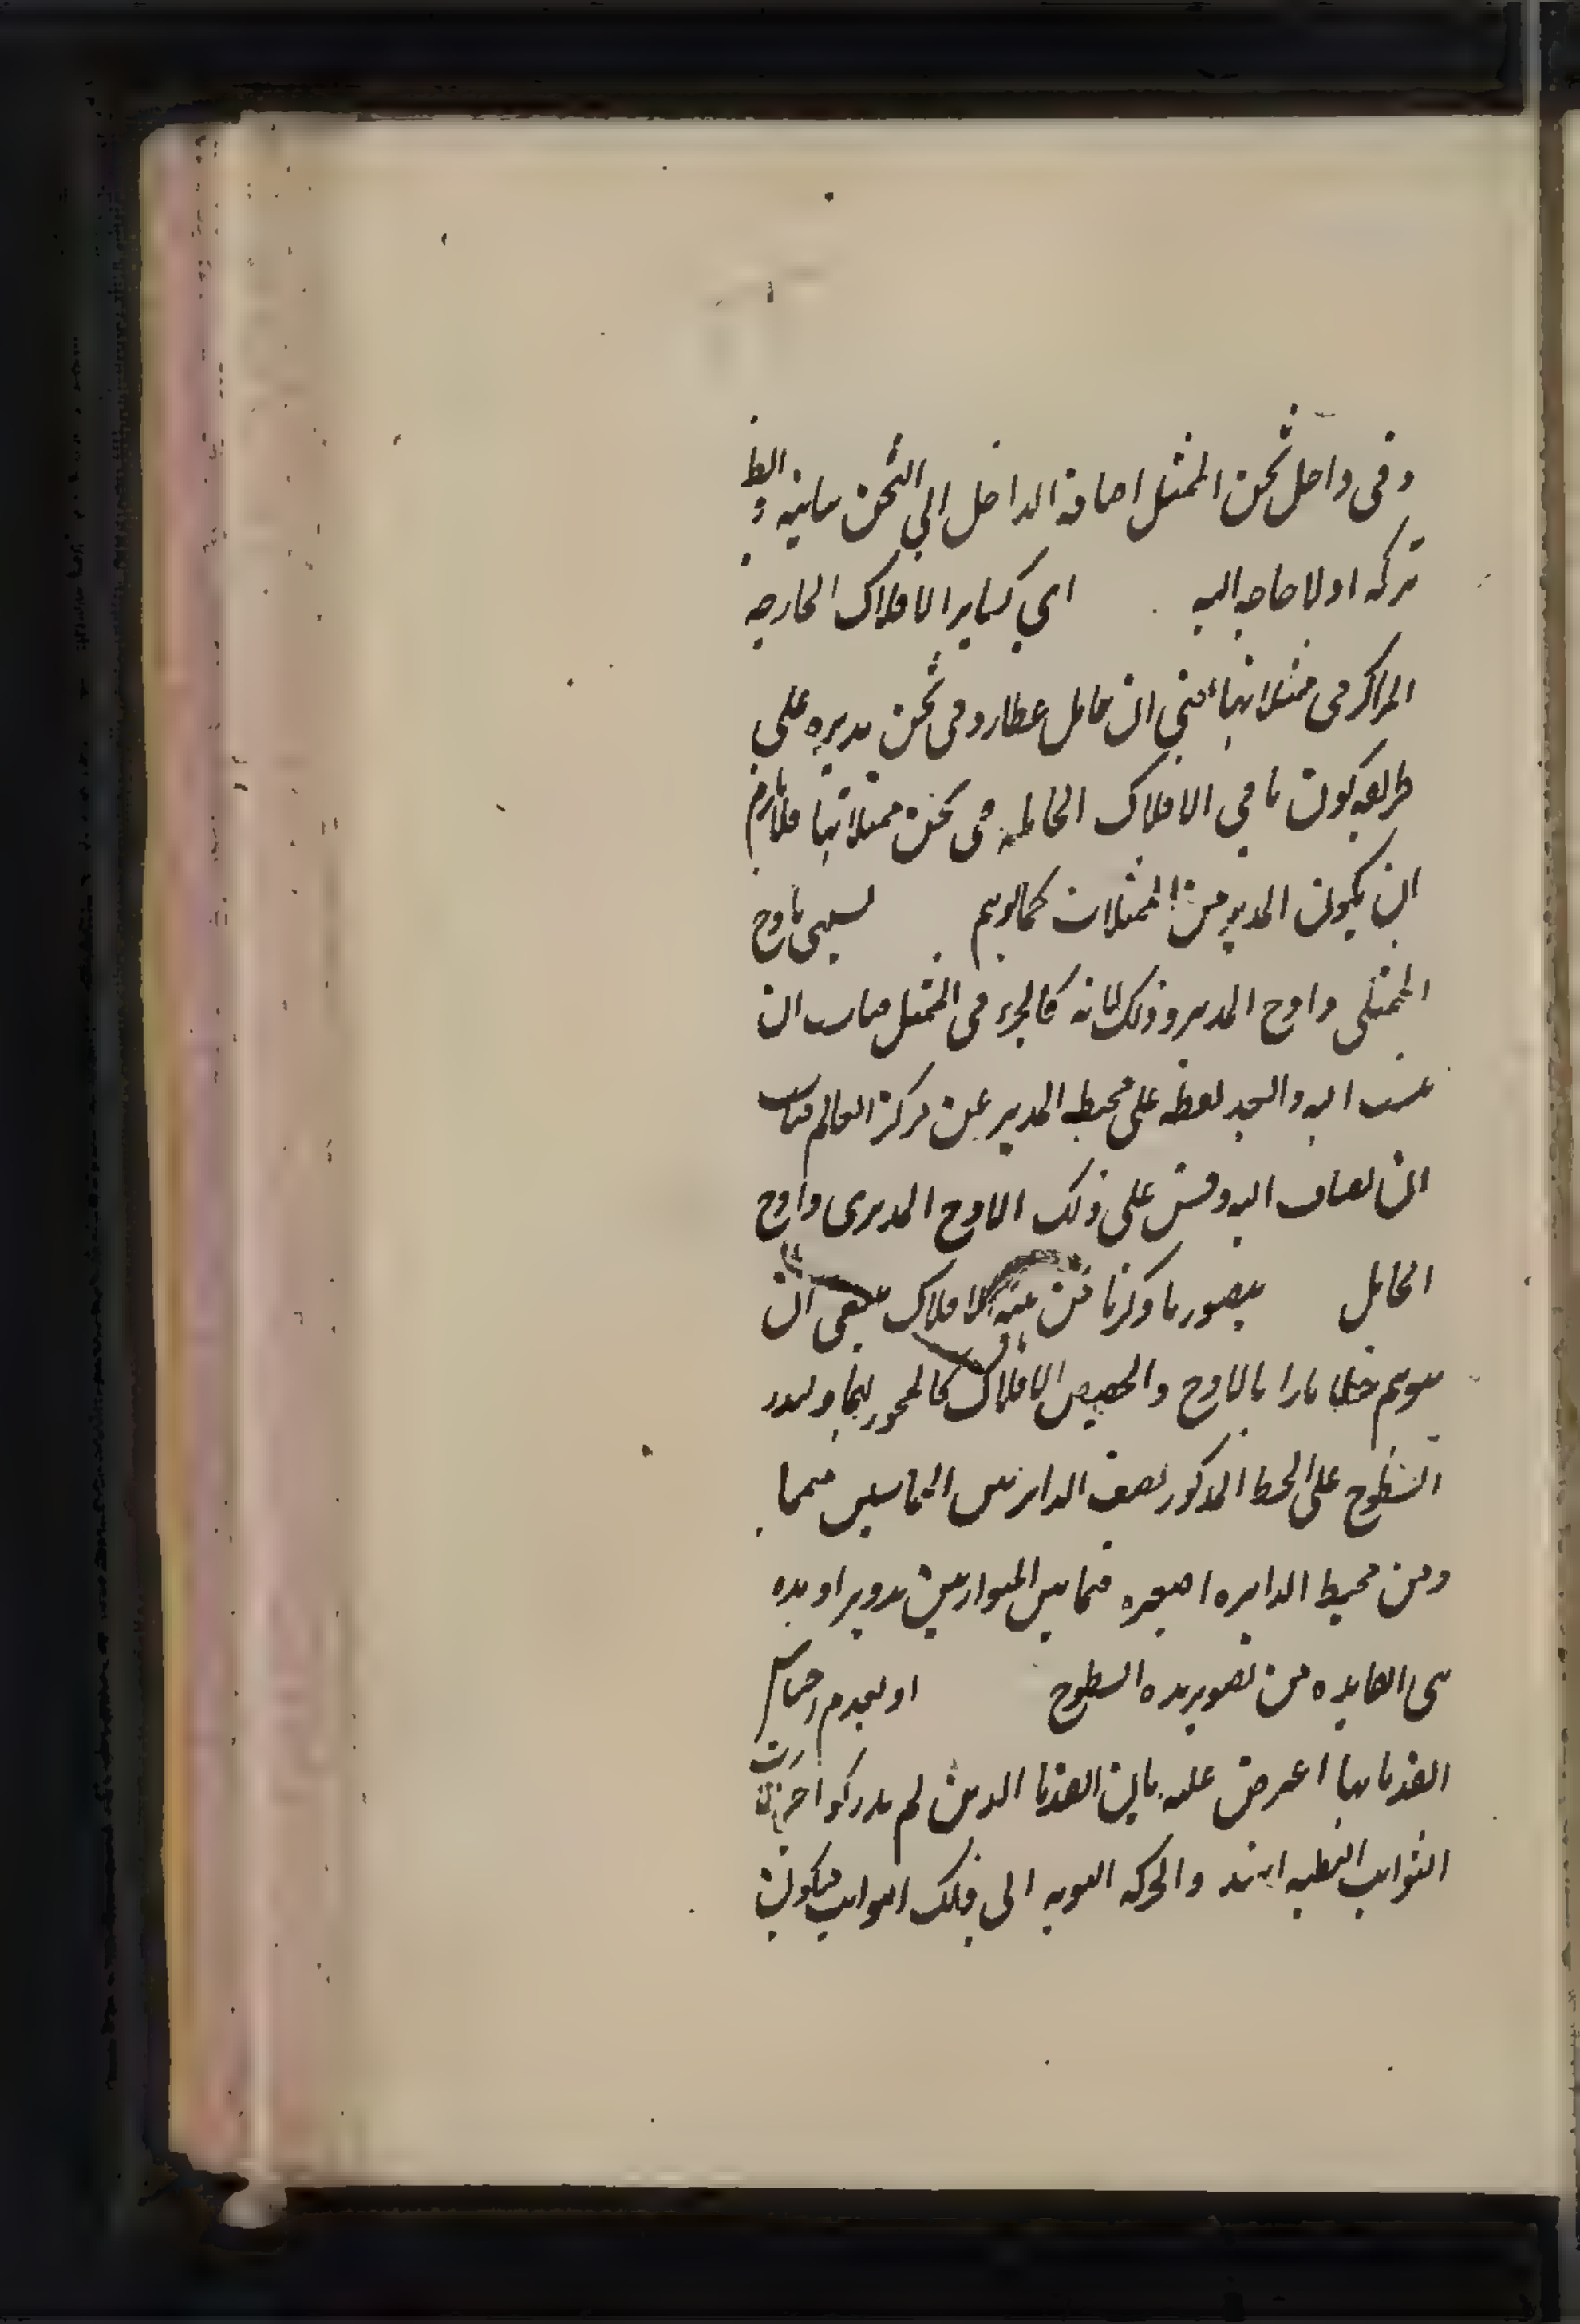 وفى داخل ثخن الممثل اضافة الداخل الى الثخن بيانيه والظ
تركه اذ لا حاجه اليه اى كساير الافلاك الخارجه
المراكز فى ممثلاتها يعنى ان حامل عطارد فى ثخن مديره على
طريقه كون باقى الافلاك الحامله فى ثخن ممثلاتها فلا يلزم
ان يكون المدير من الممثلات كما توهم يسمى باوج
الممثلى واوج المدير وذلك لانه كالجزء فى الممثل فناسب ان
ينسب اليه وابعد نقطه على محيط المدير عن مركز العالم فناسب
ان يضاف اليه وقس على ذلك الاوج المديرى واوج
الحامل يتصور ما ذكرنا من هيئة الافلاك ينبغى ان
يتوهم خطا مارا بالاوج والحضيض الافلاك كالمحور لها وليدر
السطوح على الخط المذكور نصف الدايرتين المتماستين فيما
ومن محيط الدايره الصغيره فيما بين المتوازيين تدوير او هذه
هى الفايده من تصوير هذه السطوح او لعدم احساس
القدما بها اعترض عليه بان القدما الذين لم يدركوا حركة
الثوابت البطيه اسند والحركه اليوميه الى فلك الثوابت فيكون